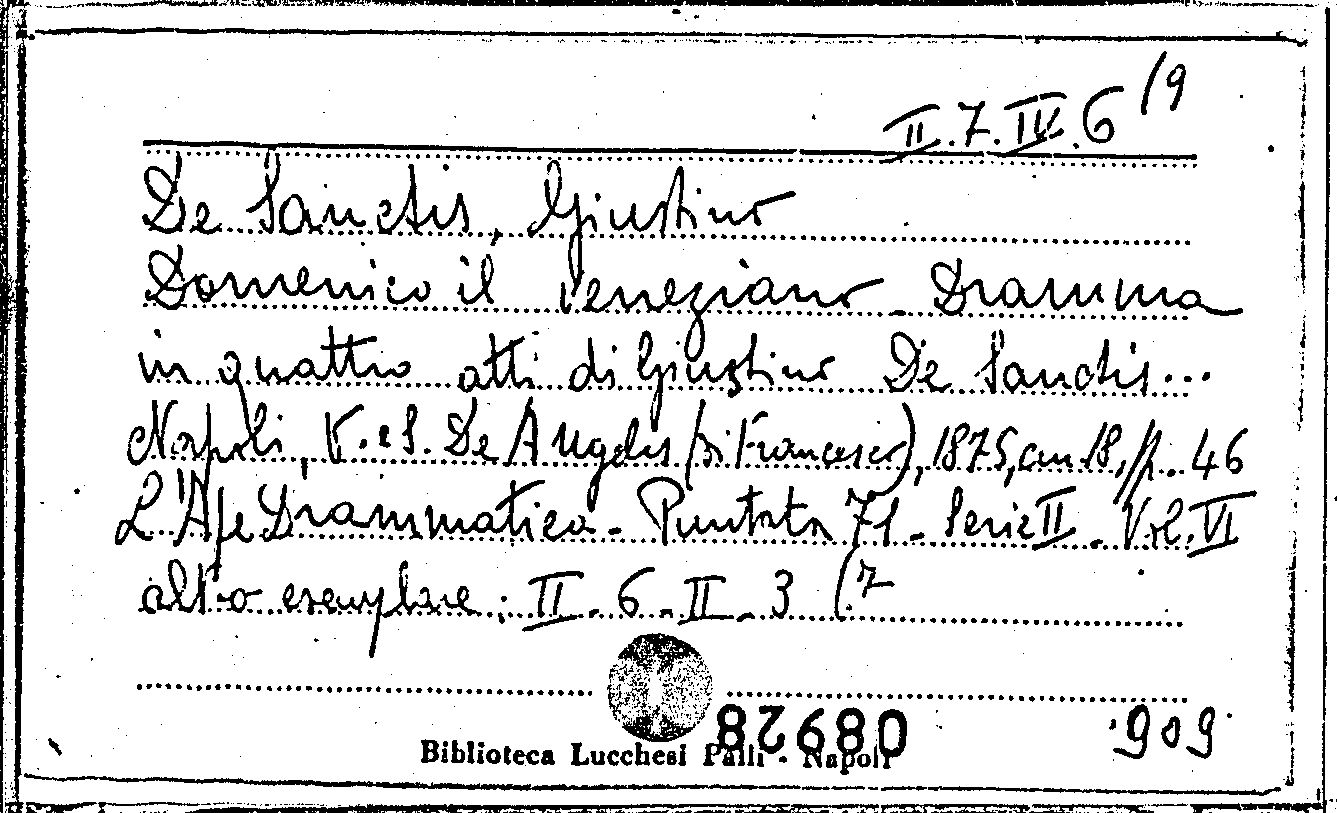 II.7.IV.6 (9
De Sanctis, Giustino
Domenico il Veneziano. Dramma
in quattro atti di Giustino De Sanctis...
Napoli, V. e S. De Angelis (di Francesco), 1875, cm 18, p. 46
L'Ape Drammatica - Puntata 71 - Serie II - Vol. VI
altro esemplare: II - 6 - II - 3 (7
08928
Biblioteca Lucchesi Palli - Napoli
909